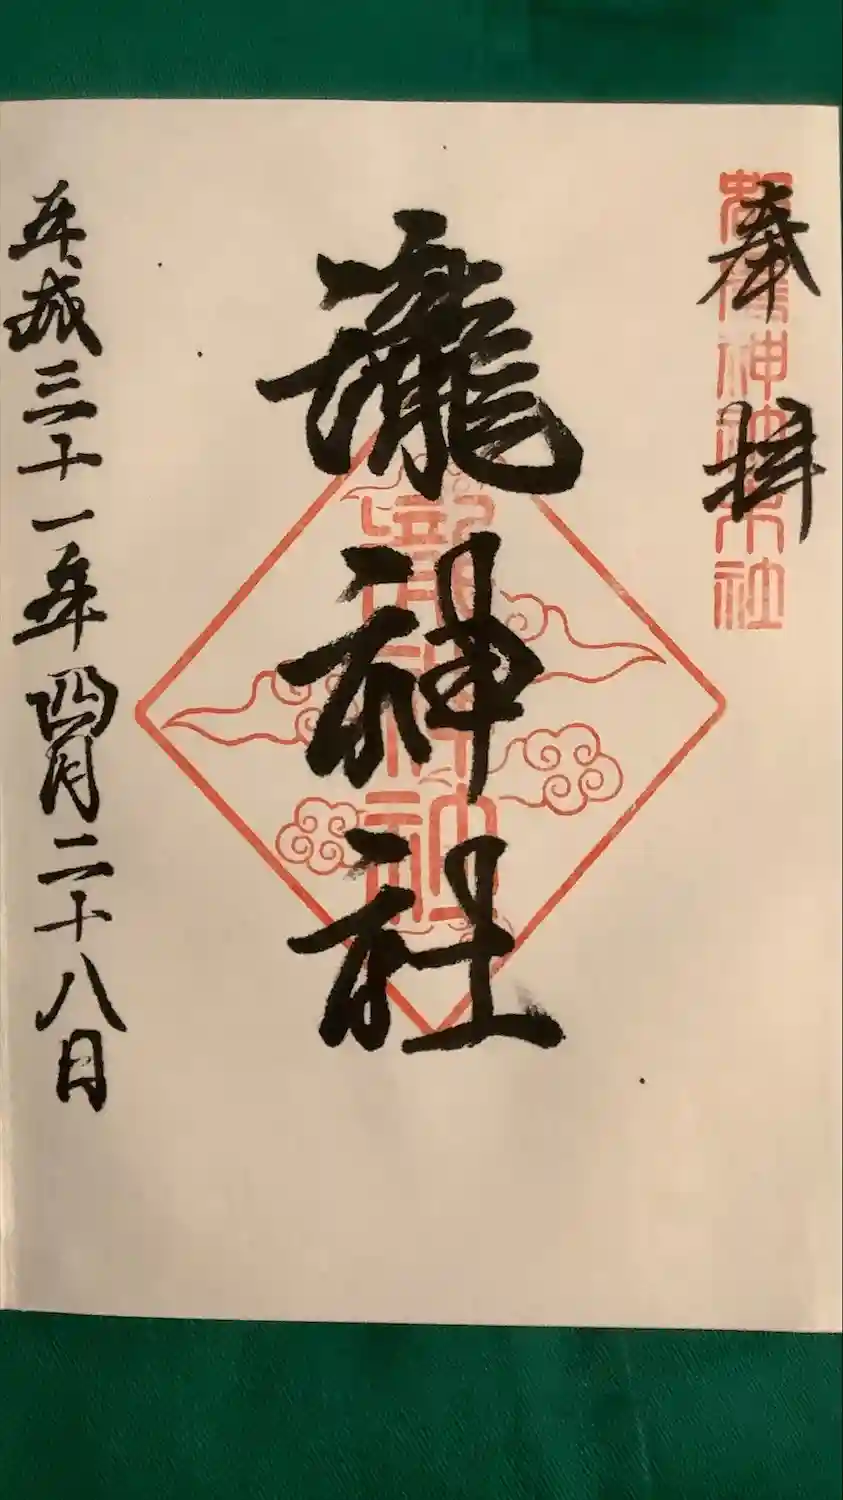 奉拝
都農神社末社
瀧神社
瀧神社
平成三十一年四月二十八日